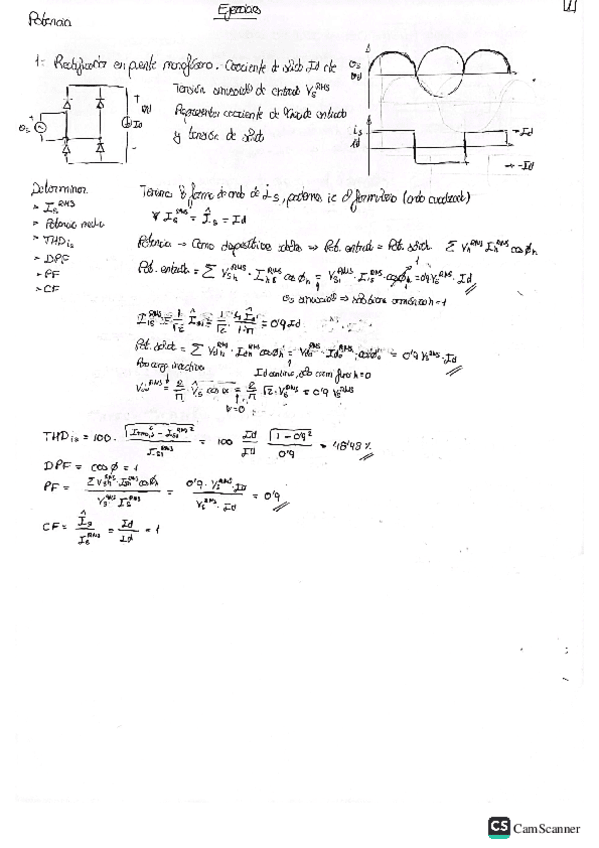 Ejercicios
1
Potencia
1: Rectificador en puente monofásico. Corriente de salida Id cte
Tensión sinusoidal de entrada Vs^RMS
Representar corriente de línea de entrada
y tensión de salida
Determinar
Is^RMS
Potencia media
THDis
DPF
PF
CF
Tenemos la forma de onda de is, podemos ir al formulario (onda cuadrada)
Is^RMS = Îs = Id
Potencia → Como dispositivos ideales ⇒ Pot. entrada = Pot. salida Σ Vh^RMS Ih^RMS cos φh
Pot. entrada = Σ Vsh^RMS · Ish^RMS cos φh = Vs1^RMS · Is1^RMS · cos φ1 = 0'9 Vs^RMS · Id
vs sinusoidal ⇒ sólo tiene armónico h=1
Is1^RMS = 1/√2 Îs1 = 1/√2 · 4 Id/π = 0'9 Id
Pot. salida = Σ Vdh^RMS · Idh^RMS cos φh = Vdo^RMS · Ido^RMS · cos φo = 0'9 Vs^RMS · Id
Id continua, sólo tiene para h=0
Vdo^RMS = 2/π · V̂s cos α = 2/π √2 · Vs^RMS = 0'9 Vs^RMS
α=0
THDis = 100 · √(Is^RMS² − Is1^RMS²) / Is1^RMS = 100 Id/Id √(1−0'9²) / 0'9 = 48'43 %
DPF = cos φ = 1
PF = Σ Vsh^RMS · Ish^RMS cos φh / Vs^RMS Is^RMS = 0'9 · Vs^RMS · Id / Vs^RMS · Id = 0'9
CF = Îs / Is^RMS = Id / Id = 1
vs
vd
is
Id
-Id
CS CamScanner